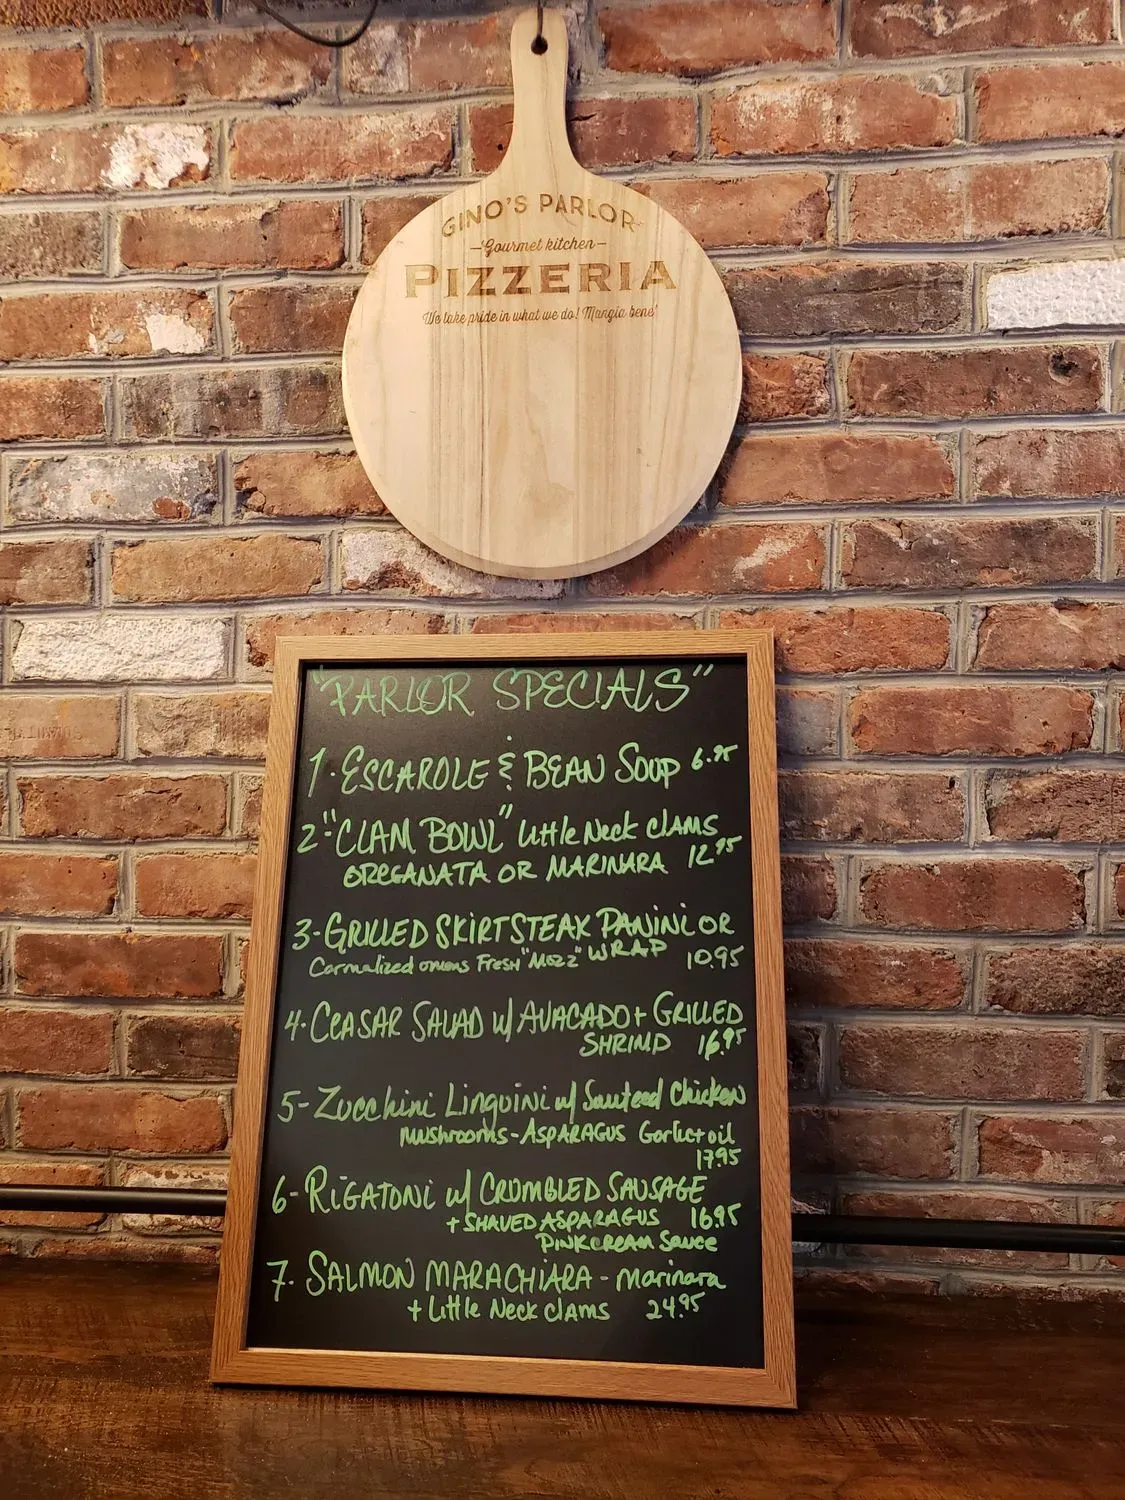 GINO'S PARLOR
-Gourmet kitchen-
PIZZERIA
We take pride in what we do! Mangia bene!
"PARLOR SPECIALS"
1. ESCAROLE & BEAN SOUP 6.95
2. "CLAM BOWL" Little Neck clAMS
OREGANATA OR MARINARA 12.95
3-GRILLED SKIRTSTEAK PANINI OR
WRAP
Carmalized onions FRESH "MOZZ" 10.95
4. CEASAR SALAD w/ AVACADO + GRILLED
SHRIMP 16.95
5- Zucchini Linguini w/ Sauteed Chicken
MUSHROOMS-ASPARAGUS Garlic+oil
17.95
6- RIGATONI w/ CRUMBLED SAUSAGE
+ SHAVED ASPARAGUS 16.95
PINK CREAM SAUCE
7. SALMON MARACHIARA - Marinara
+ Little Neck clams 24.95